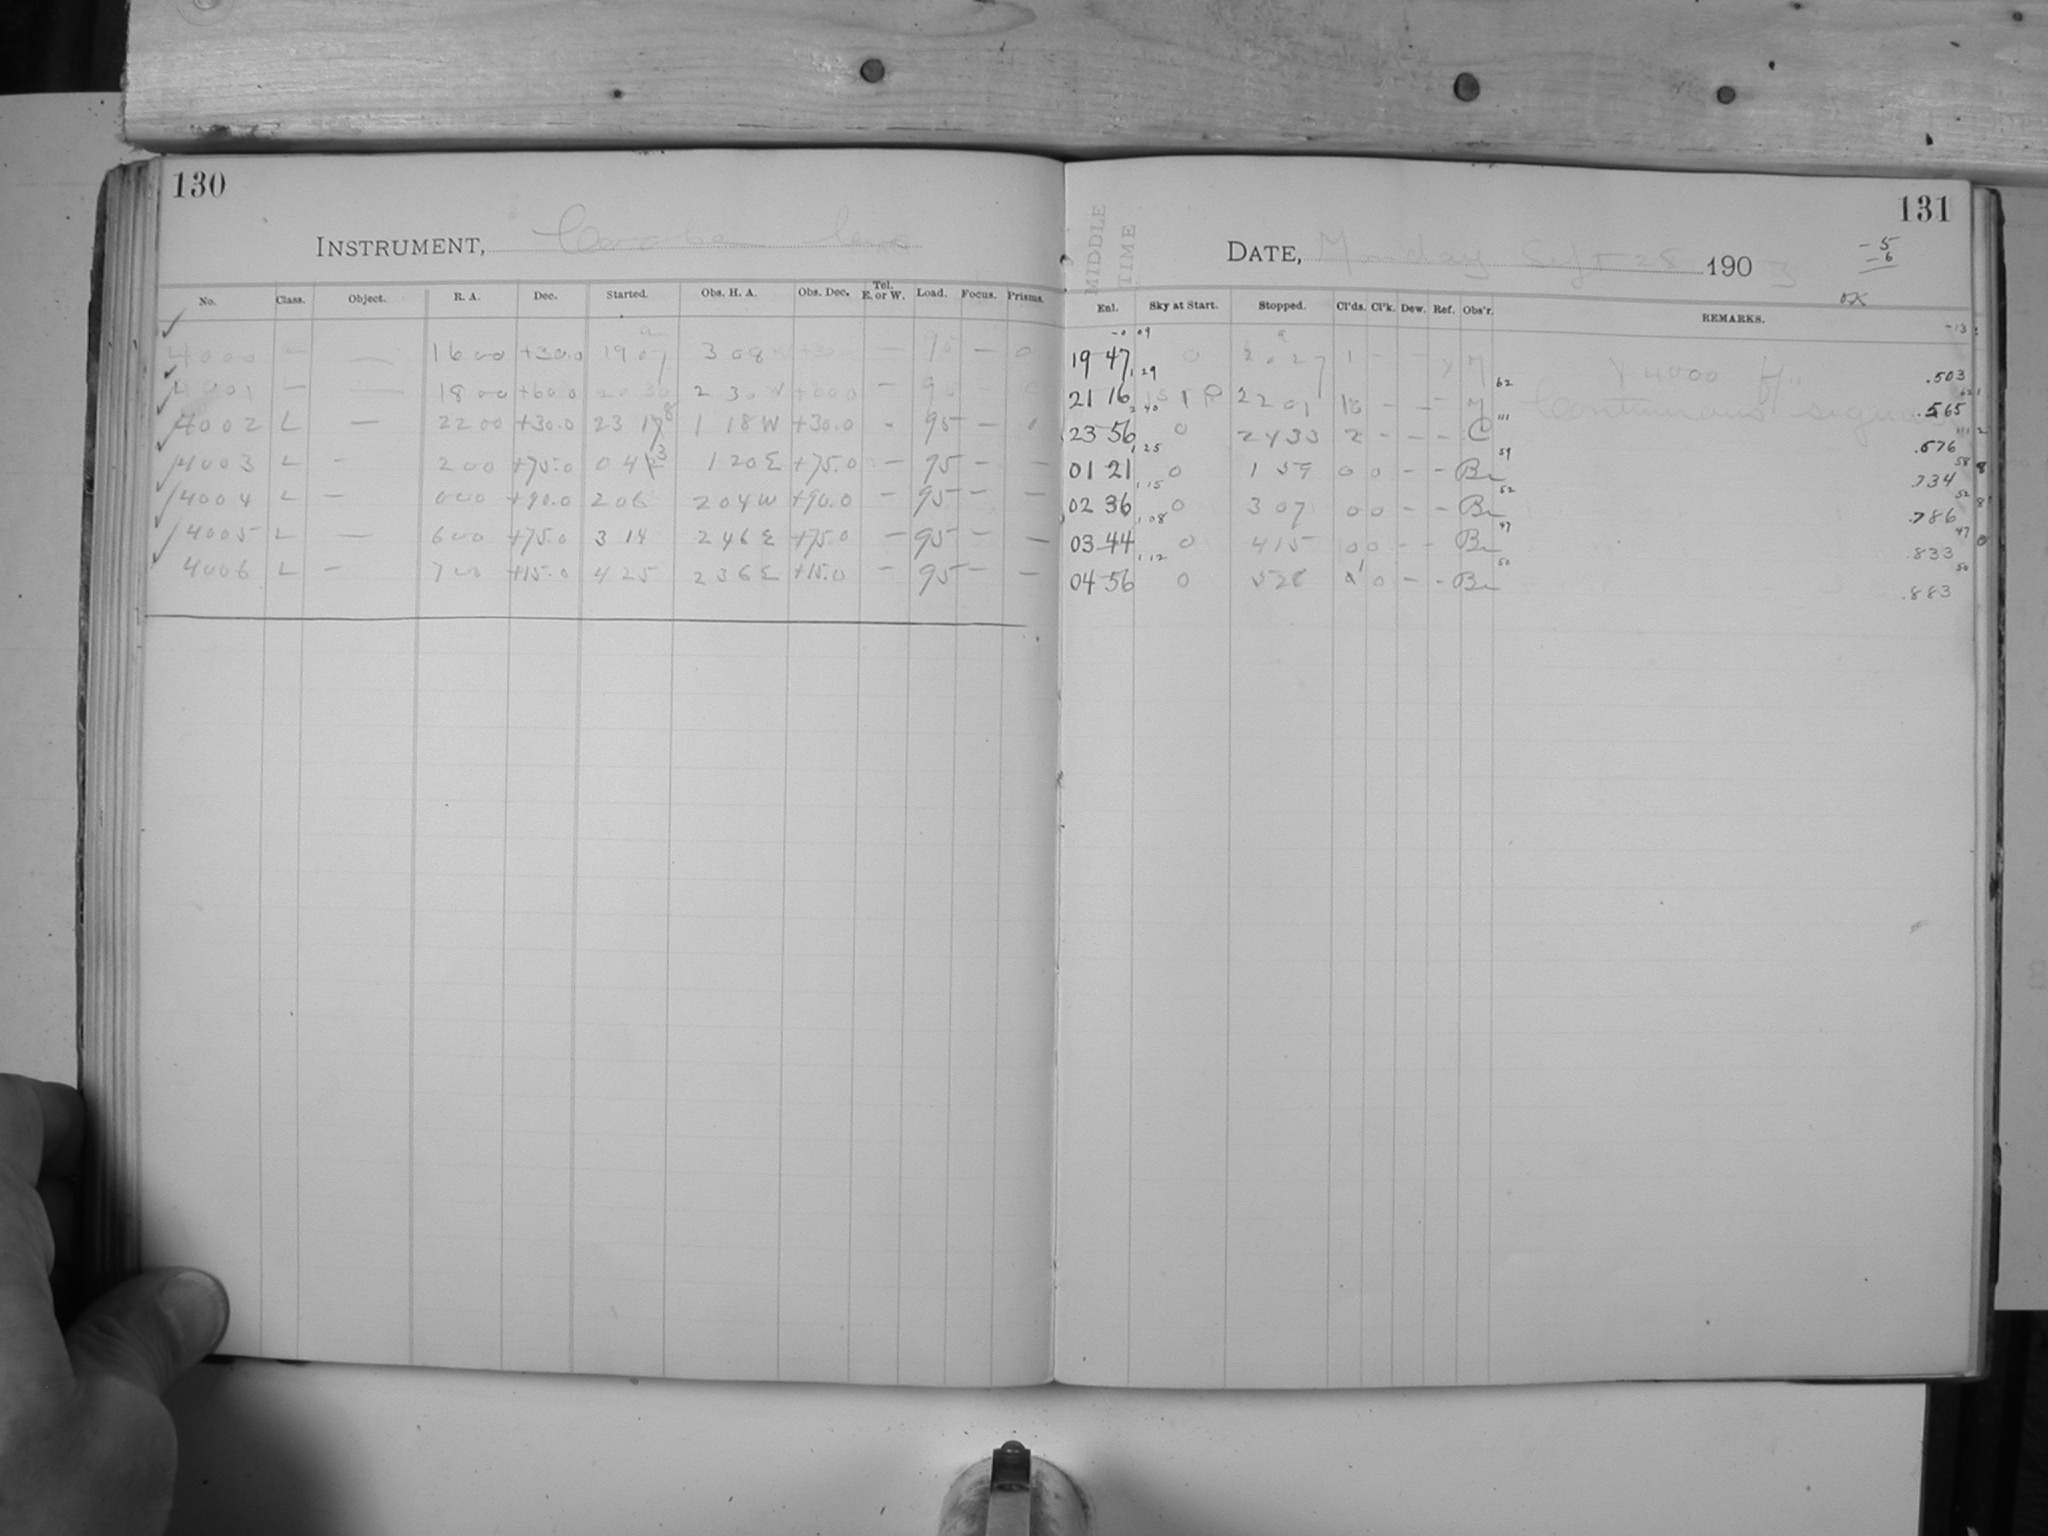 130
INSTRUMENT,
No. Class. Object. R. A. Dec. Started. Obs. H. A. Obs. Dec. Tel. E. or W. Load. Focus. Prisms.
4000 — — 16 00 +30.0 19 07 3 08 — 95 —
4001 — — 18 00 +60.0 20 30 2 30 W +60.0 — 95 —
4002 L — 22 00 +30.0 23 17 1 18 W +30.0 - 95 —
4003 L - 2 00 +75.0 0 4 1 20 E +75.0 — 95 — —
4004 L — 0 00 +90.0 2 06 2 04 W +90.0 — 95 — —
4005 L — 6 00 +75.0 3 14 2 46 E +75.0 — 95 — —
4006 L — 7 00 +15.0 4 25 2 36 E +15.0 — 95 — —
131
MIDDLE TIME
DATE, Monday Sept 28 1903
-5
-6
OK
Enl. Sky at Start. Stopped. Cl'ds. Cl'k. Dew. Ref. Obs'r. REMARKS.
19 47 0 20 27 1 - - .503
21 16 22 01 - - .565
23 56 0 24 33 2 - - - C .676
01 21 0 1 59 0 0 - - Br .734
02 36 0 3 07 0 0 - - Br .786
03 44 0 4 15 0 0 - - Br .833
04 56 0 5 28 0 - - Br .883